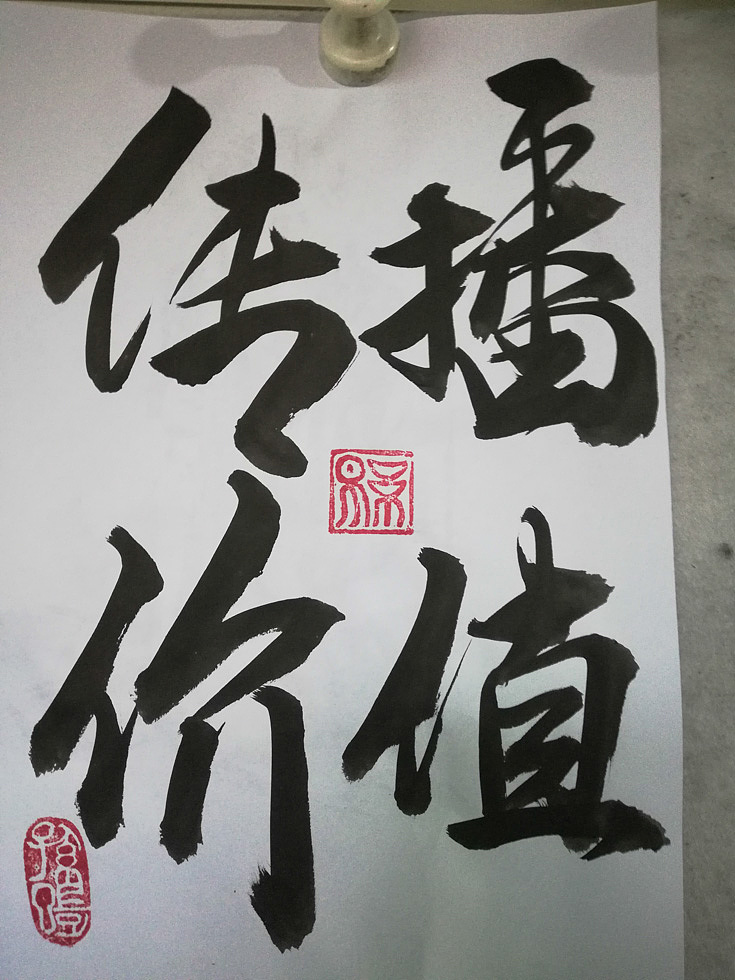 传播
价值